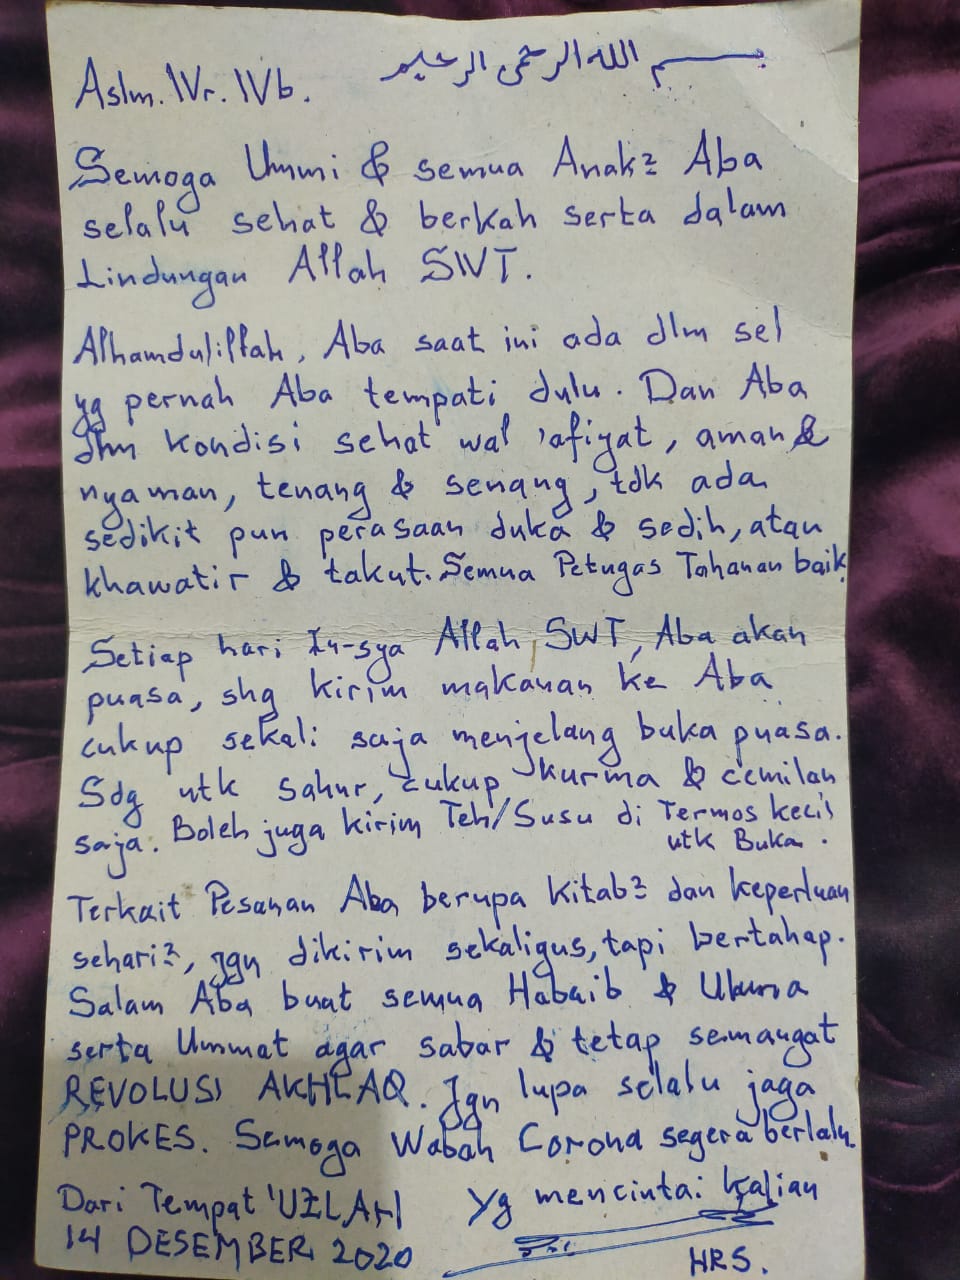 بسم الله الرحمن الرحيم
Aslm. Wr. Wb.
Semoga Ummi & semua Anak2 Aba
selalu sehat & berkah serta dalam
Lindungan Allah SWT.
Alhamdulillah, Aba saat ini ada dlm sel
yg pernah Aba tempati dulu. Dan Aba
dlm kondisi sehat wal 'afiyat, aman &
nyaman, tenang & senang, tdk ada
sedikit pun perasaan duka & sedih, atau
khawatir & takut. Semua Petugas Tahanan baik
Setiap hari In-sya Allah SWT, Aba akan
puasa, shg kirim makanan ke Aba
cukup sekali saja menjelang buka puasa.
Sdg utk sahur, cukup kurma & cemilan
saja. Boleh juga kirim Teh/Susu di Termos kecil
utk Buka.
Terkait Pesanan Aba berupa Kitab2 dan keperluan
sehari2, jgn dikirim sekaligus, tapi bertahap.
Salam Aba buat semua Habaib & Ulama
serta Ummat agar sabar & tetap semangat
REVOLUSI AKHLAQ. Jgn lupa selalu jaga
PROKES. Semoga Wabah Corona segera berlalu.
Dari Tempat 'UZLAH
14 DESEMBER 2020
Yg mencintai kalian
HRS.